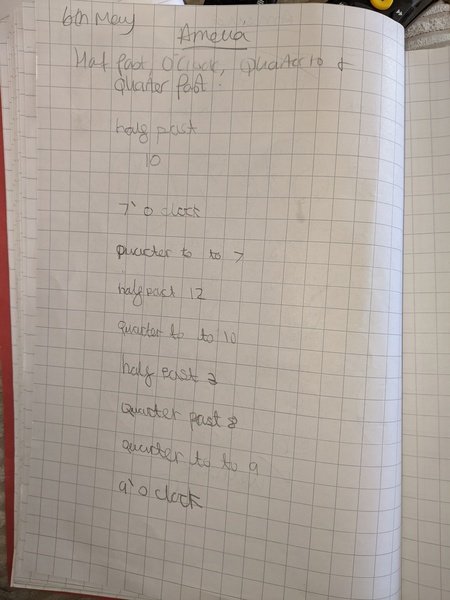 6th May
Amelia
Half past O'Clock, Quarter to &
Quarter past.
half past
10
7'o clock
quarter to to 7
half past 12
quarter to to 10
half past 2
quarter past 8
quarter to to 9
9'o clock